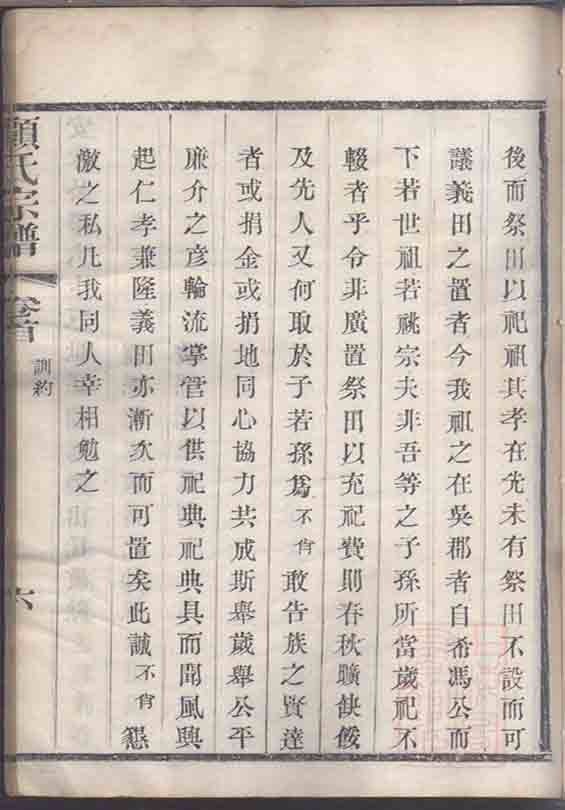 後而祭田以祀祖其孝在先未有祭田不設而可
議義田之置者今我祖之在吳郡者自希馮公而
下若世祖若祧宗夫非吾等之子孫所當歲祀不
輟者乎令非廣置祭田以充祀費則春秋曠缺
及先人又何取於子若孫爲不肖敢告族之賢達
者或捐金或捐地同心協力共成斯舉歲舉公平
廉介之彥輪流掌管以供祀典祀典具而聞風興
起仁孝兼隆義田亦漸次而可置矣此誠不肖懇
激之私凡我同人幸相勉之
顧氏宗譜 卷首 訓約 六